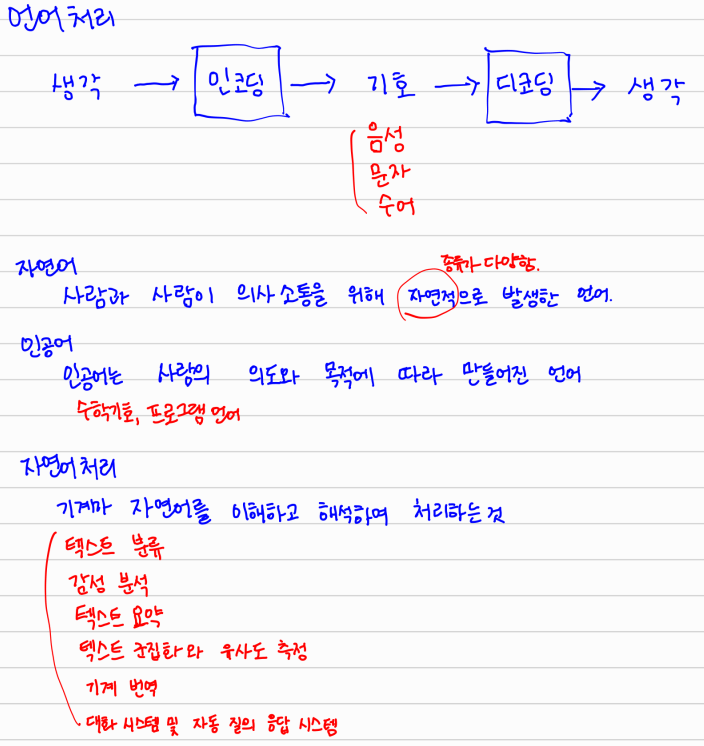 언어 처리
생각 → 인코딩 → 기호 → 디코딩 → 생각
음성
문자
수어
자연어
종류가 다양함.
사람과 사람이 의사소통을 위해 자연적으로 발생한 언어.
인공어
인공어는 사람의 의도와 목적에 따라 만들어진 언어
수학기호, 프로그램 언어
자연어 처리
기계가 자연어를 이해하고 해석하여 처리하는 것
텍스트 분류
감성 분석
텍스트 요약
텍스트 군집화와 유사도 측정
기계 번역
대화 시스템 및 자동 질의 응답 시스템